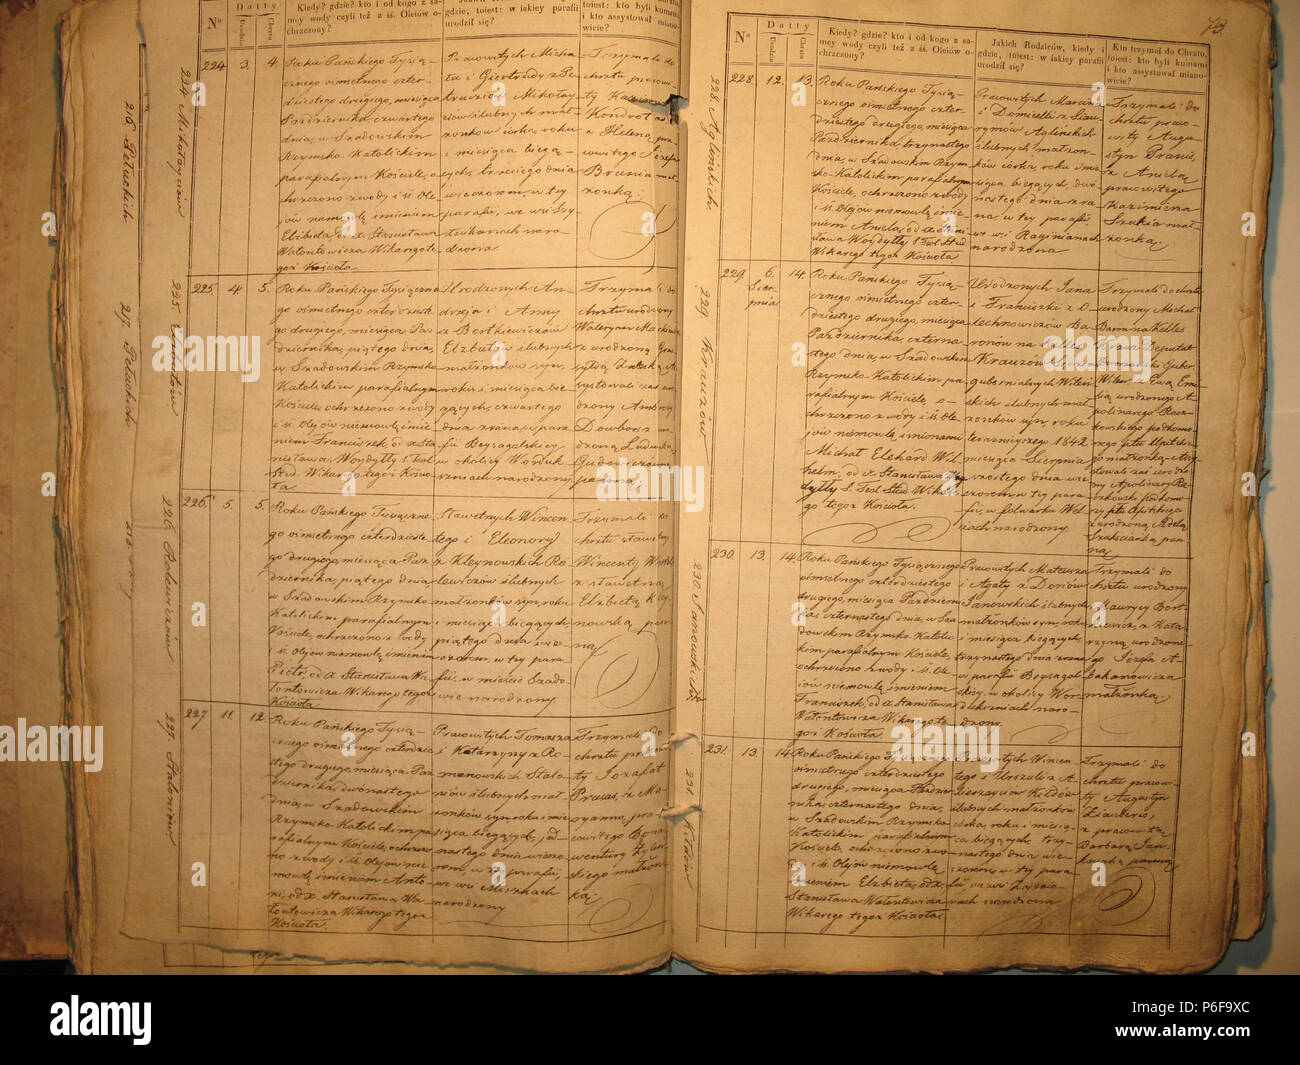 N
Datty
Urodzin
Chrztu
Kiedy? gdzie? kto i od kogo z sa-
mey wody czyli też z śś. Oleiów o-
chrzczony?
gdzie, toiest: w iakiey parafii
urodził się?
toiest: kto byli kumami
i kto assystował miano-
wicie?
224. Mikołajciów
224 3. 4
Roku Pańskiego Tysią-
cznego ośmsetnego czter-
dziestego drugiego, miesiąca
Października, czwartego
dnia, w Szadowskim
Rzymsko-Katolickim
parafialnym Kościele, o-
chrzczono z wody i śś. Ole-
jów niemowlę imieniem
Elżbieta, od x. Stanisława
Wołontowicza Wikarego te-
goż Kościoła
Pracowitych Micha-
ła i Giertrudy z Pe-
truzió Mikołay-
ciów ślubnych mał-
żonków córkę, roku
i miesiąca bieżą-
cych, trzeciego dnia
wieczorem, w tey
parafii, we wsi
naro-
dzona
Trzymali do
chrztu pracowi-
ty Kazimierz
Kondrot
z Heleną, pra-
cowitego Józefa
Brunia mał-
żonką
216. Petuckich
217. Petuckich
225.
225 4 5.
Roku Pańskiego Tysiączne-
go ośmsetnego czterdzieste-
go drugiego, miesiąca Paź-
dziernika, piątego dnia,
w Szadowskim Rzymsko-
Katolickim parafialnym
Kościele, ochrzczono z wody
i śś. Olejów niemowlę imie-
niem Franciszek, od x. Sta-
nisława Woydyłły S. Teol.
Stud. Wikarego tegoż Kościo-
ła
Urodzonych An-
drzeja i Anny
z Bortkiewiczów
Elzbutów ślubnych
małżonków syn,
roku i miesiąca bie-
żących, czwartego
dnia z rana, w para-
fii Beysagolskiey
w okolicy Worduk-
szniach narodzony
Trzymali do
chrztu urodzony
Waleryan Mackie
z urodzoną Gra-
syldą
systowali
dzony Ambroży
Dowbor z uro-
dzoną Ludwiką
Gudowiczówną
panną
226. Rolewiczów
226. 5. 5.
Roku Pańskiego Tysiączne-
go ośmsetnego czterdzieste-
go drugiego, miesiąca Paź-
dziernika, piątego dnia
w Szadowskim Rzymsko-
Katolickim parafialnym
Kościele, ochrzczono z wody
i śś. Olejów niemowlę imieniem
Piotr, od x. Stanisława Wo-
łontowicza Wikarego tegoż
Kościoła
Sławetnych Wincen-
tego i Eleonory
z Kleynowskich Ro-
lewiczów ślubnych
małżonków syn, roku
i miesiąca bieżących
piątego dnia wie-
czorem, w tey para-
fii, w mieście Szado-
wie narodzony
Trzymali do
chrztu sławetny
Wincenty
z sławetną
Elzbietą Kley-
nowską pan-
ną
227. Staloniów
227 11. 12.
Roku Pańskiego Tysią-
cznego ośmsetnego czterdzie-
stego drugiego, miesiąca Paź-
dziernika, dwónastego
dnia, w Szadowskim
Rzymsko-Katolickim pa-
rafialnym Kościele, ochrzczo-
no z wody i śś. Olejów nie-
mowlę imieniem Anto-
ni, od x. Stanisława Wo-
łontowicza Wikarego tegoż
Kościoła
Pracowitych Tomasza
i Katarzyny z Ro-
manowskich Stalo-
niów ślubnych mał-
żonków syn, roku i mie-
siąca bieżących, jed-
nastego dnia wieczo-
rem, w tey parafii,
we wsi Mieszkach
narodzony
Trzymali do
chrztu pracowi-
ty Jozafat
Prusas, z Ma-
ryanną, pra-
cowitego Bona-
wentury
skiego małżon-
ką
73.
N°
Datty
Urodzin
Chrztu
Kiedy? gdzie? kto i od kogo z sa-
mey wody czyli też z śś. Oleiów o-
chrzczony?
Jakich Rodziców, kiedy i
gdzie, toiest: w iakiey parafii
urodził się?
Kto trzymał do Chrztu,
toiest: kto byli kumami
i kto assystował miano-
wicie?
228. Aglińskich.
228. 12. 13.
Roku Pańskiego Tysią-
cznego ośmsetnego czter-
dziestego drugiego, miesiąca
Października, trzynastego
dnia, w Szadowskim Rzym-
sko-Katolickim parafialnym
Kościele, ochrzczono z wody
i śś. Olejów niemowlę imie-
niem Aniela, od x. Stani-
sława Woydyłły S. Teol. Stud.
Wikarego tegoż Kościoła
Pracowitych Marcina
i Domicelli z
Aglińskich
ślubnych małżon-
ków córka, roku i mie-
siąca bieżących, dwó-
nastego dnia z ra-
na, w tey parafii,
we wsi Raginianach
narodzona
Trzymali do
chrztu praco-
wity Augu-
styn Pranis,
z Anielą
pracowitego
Kazimierza
mał-
żonką
229. Krauzów
229. 6.
Sier-
pnia
14.
Roku Pańskiego Tysią-
cznego ośmsetnego czter-
dziestego drugiego, miesiąca
Października, czterna-
stego dnia, w Szadowskim
Rzymsko-Katolickim pa-
rafialnym Kościele, o-
chrzczono z wody i śś. Ole-
jów niemowlę imionami
Michał Ekhard Wil-
helm, od x. Stanisława Woy-
dyłły S. Teol. Stud. Wikare-
go tegoż Kościoła.
Urodzonych Jana
i Franciszki z O-
lechnowiczów Ba-
ronów na Kelles
Krauzów
gubernialnych Wileń-
skich ślubnych mał-
żonków syn, roku
teraźniejszego 1842
miesiąca Sierpnia
szóstego dnia wie-
czorem, w tey para-
fii, w folwarku Wol-
żach narodzony.
Trzymali do chrztu
urodzony Michał
Baron na Kelles
Krauz Deputat
Guber.
Wileń. z Ewą Emi-
lią urodzonego A-
polinarego Racz-
kowskiego podkomo-
rzego ptu Upitskie-
go małżonką. Assy-
stowali zaś urodzo-
ny Apolinary Ra-
czkowski Podkomo-
rzy ptu Upitskiego
z urodzoną Adelą
pan-
ną
230. Janowskich
230. 13. 14.
Roku Pańskiego Tysiącznego
ośmsetnego czterdziestego
drugiego, miesiąca Październi-
ka, czternastego dnia, w Sza-
dowskim Rzymsko-Katolic-
kim parafialnym Kościele,
ochrzczono z wody i śś. Ole-
jów niemowlę imieniem
Franciszek, od x. Stanisława
Wołontowicza Wikarego te-
goż Kościoła.
Pracowitych Mateusza
i Agaty z Doniów
Janowskich ślubnych
małżonków syn, roku
i miesiąca bieżących,
trzynastego dnia z rana
w parafii Beysagol-
skiey, w okolicy Wor-
dukszniach naro-
dzony.
Trzymali do
chrztu urodzony
Maurycy Bort-
kiewicz, z Kata-
rzyną urodzone-
go Józefa A-
bakanowicza
małżonką.
231. Kiełdów
231. 13. 14.
Roku Pańskiego Tysiącznego
ośmsetnego czterdziestego
drugiego, miesiąca Paździer-
nika, czternastego dnia,
w Szadowskim Rzymsko-
Katolickim parafialnym
Kościele, ochrzczono z wo-
dy i śś. Olejów niemowlę
imieniem Elżbieta, od x.
Stanisława Wołontowicza
Wikarego tegoż Kościoła.
Pracowitych Wincen-
tego i Urszuli z A-
Kiełdów
ślubnych małżonków
córka, roku i miesią-
ca bieżących, trzy-
nastego dnia wie-
czorem, w tey para-
fii, we wsi
narodzona
Trzymali do
chrztu pracowi-
ty Augustyn
z pracowitą
Barbarą Jan-
panną
alamy
alamy stock photo
Image ID: P6F9XC
www.alamy.com